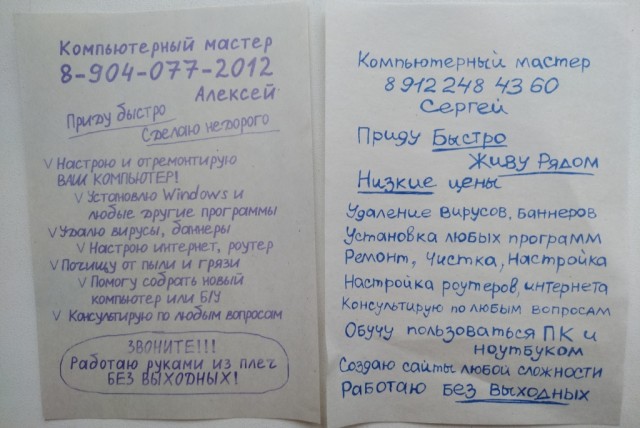 Компьютерный мастер
8-904-077-2012
Алексей
Приду быстро
Сделаю недорого
V Настрою и отремонтирую
ВАШ КОМПЬЮТЕР!
V Установлю Windows и
любые другие программы
V Удалю вирусы, баннеры
V Настрою интернет, роутер
V Почищу от пыли и грязи
V Помогу собрать новый
компьютер или Б/У
V Консультирую по любым вопросам
ЗВОНИТЕ!!!
Работаю руками из плеч
БЕЗ ВЫХОДНЫХ!
Компьютерный мастер
8 912 248 43 60
Сергей
Приду Быстро
Живу Рядом
Низкие цены
Удаление вирусов, баннеров
Установка любых программ
Ремонт, Чистка, Настройка
Настройка роутеров, интернета
Консультирую по любым вопросам
Обучу пользоваться ПК и
ноутбуком
Создаю сайты любой сложности
Работаю Без выходных